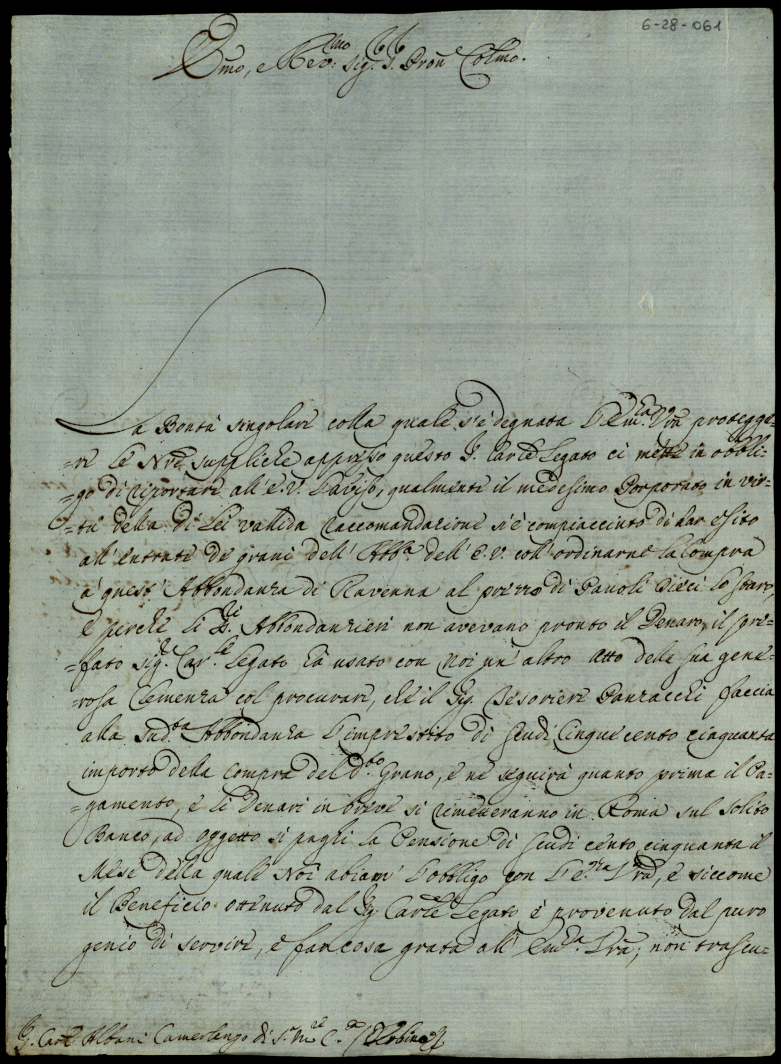 6-28-061
Emo, e Rev.mo Sig. S. Pron Colmo.
La Bontà singolare colla quale s'è degnata l'Em.za Vra protegge=
=re le Nre suppliche appresso questo S. Carle Legato ci mette in obbli=
=go di riportare all'E.V. l'aviso, qualmente il medesimo Porporato in vir=
=tù della di Lei vallida raccomandazione si è compiacciuto di dar esito
all'entrate de grani dell'Abb.a dell'E.V. coll'ordinarne la compra
a quest'Abbondanza di Ravenna al prezzo di Pauoli Dieci lo staro,
e perche li SS.ri Abbondanzieri non avevano pronto il Denaro, il pre=
=fato Sig.r Car.le Legato hà usato con noi un'altro Atto della sua gene=
=rosa Clemenza col procurare, che il Sig. Tesoriere Panzacchi faccia
alla Sud.ta Abbondanza l'imprestito di Scudi Cinquecento cinquanta
importo della compra del d.to Grano, e ne seguirà quanto prima il Pa=
=gamento, e li Denari in breve si rimetteranno in Roma sul solito
Banco, ad oggetto si paghi la Pensione di scudi cento cinquanta il
Mese della quale Noi abiam' l'obbligo con l'E.za Vra, e siccome
il Beneficio ottenuto dal Sig Carle Legato è provenuto dal puro
genio di servire, e far cosa grata all'Em.za Vra; non trascu=
S. Card Albani Camerlengo di S.